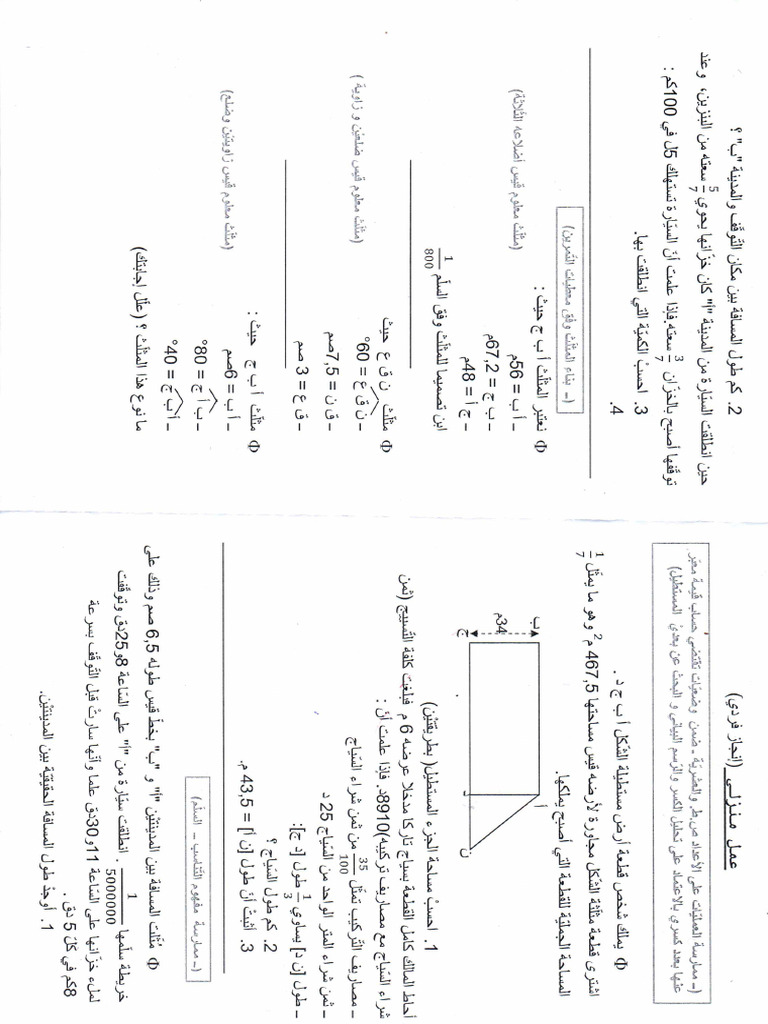 عمل منزلي (انجاز فردي)
(ـ ممارسة العمليّات على الأعداد ص.ط. والعشريّة ـ ضمن وضعيّات تقتضي حساب قيمة معبّر
عنها بعدد كسري بالاعتماد على تحليل الكسر والرسم البياني و البحث عن بعديْ المستطيل)
Φ يملك شخص قطعة أرض مستطيلة الشّكل أ ب ج د .
اشترى قطعة مثلّثة الشّكل مجاورة لأرضه قيس مساحتها 467,5 م² وهو ما يمثّل 1/7
المساحة الجمليّة للقطعة التي أصبح يملكها.
أ
ب
34م
ج
د
ن
1. احسبْ مساحة الجزء المستطيل( بطريقتيْن)
أحاط المالك كامل القطعة بسياج تاركا مدخلا عرضه 6 م فبلغت كلفة التّسييج (ثمن
شراء السّياج مع مصاريف تركيبه)8910د. فإذا علمت أنّ :
ـ مصاريف التّركيب تمثّل 35/100 من ثمن شراء السّياج
ـ ثمن شراء المتر الواحد من السّياج 25 د
ـ طول [ن د] يساوي 1/3 طول [د ج]:
2. كم طول السّياج ؟
3. أثبتْ أنّ طول [ن أ] = 43,5 م.
(ـ ممارسة مفهوم التّناسب ـ السلّم)
Φ مُثّلت المسافة بين المدينتيْن "أ" و "ب" بخطّ قيس طوله 6,5 صم وذلك على
خريطة سلّمها 1/5000000 . انطلقت سيّارة من "أ" على السّاعة 8و25دق وتوقّفت
لملء خزّانها على السّاعة 11و30دق علما وأنّها سارتْ قبل التّوقّف بسرعة
8كم في كلّ 5 دق .
1. أوجدْ طول المسافة الحقيقيّة بين المدينتيْن.
2. كم طول المسافة بين مكان التّوقّف والمدينة "ب" ؟
حين انطلقت السيّارة من المدينة "أ" كان خزّانها يحوي 5/7 سعته من البنزين، وعند
توقّفها أصبح بالخزّان 3/7 سعته.فإذا علمت أنّ السيّارة تستهلك 5ل في 100كم :
3. احسبْ الكميّة التي انطلقت بها.
4.
(ـ بناء المثلّث وفق معطيات التّمرين)
Φ نعتبر المثلّث أ ب ج حيث : (مثلّث معلوم قيس أضلاعه الثّلاثة)
ـ أ ب = 56م
ـ ب ج = 67,2م
ـ ج أ = 48م
ابن تصميما للمثلّث وفق السلّم 1/800
Φ مثلّث ن ق ع حيث (مثلّث معلوم قيس ضلعيْن و زاوية )
ـ ن ق ع = 60°
ـ ق ن = 7,5صم
ـ ق ع = 3 صم
Φ مثلّث أ ب ج حيث : (مثلّث معلوم قيس زاويتيْن وضلع)
ـ أ ب = 6صم
ـ ب أ ج = 80°
ـ أ ب ج = 40°
ما نوع هذا المثلّث ؟ (علّل إجابتك)